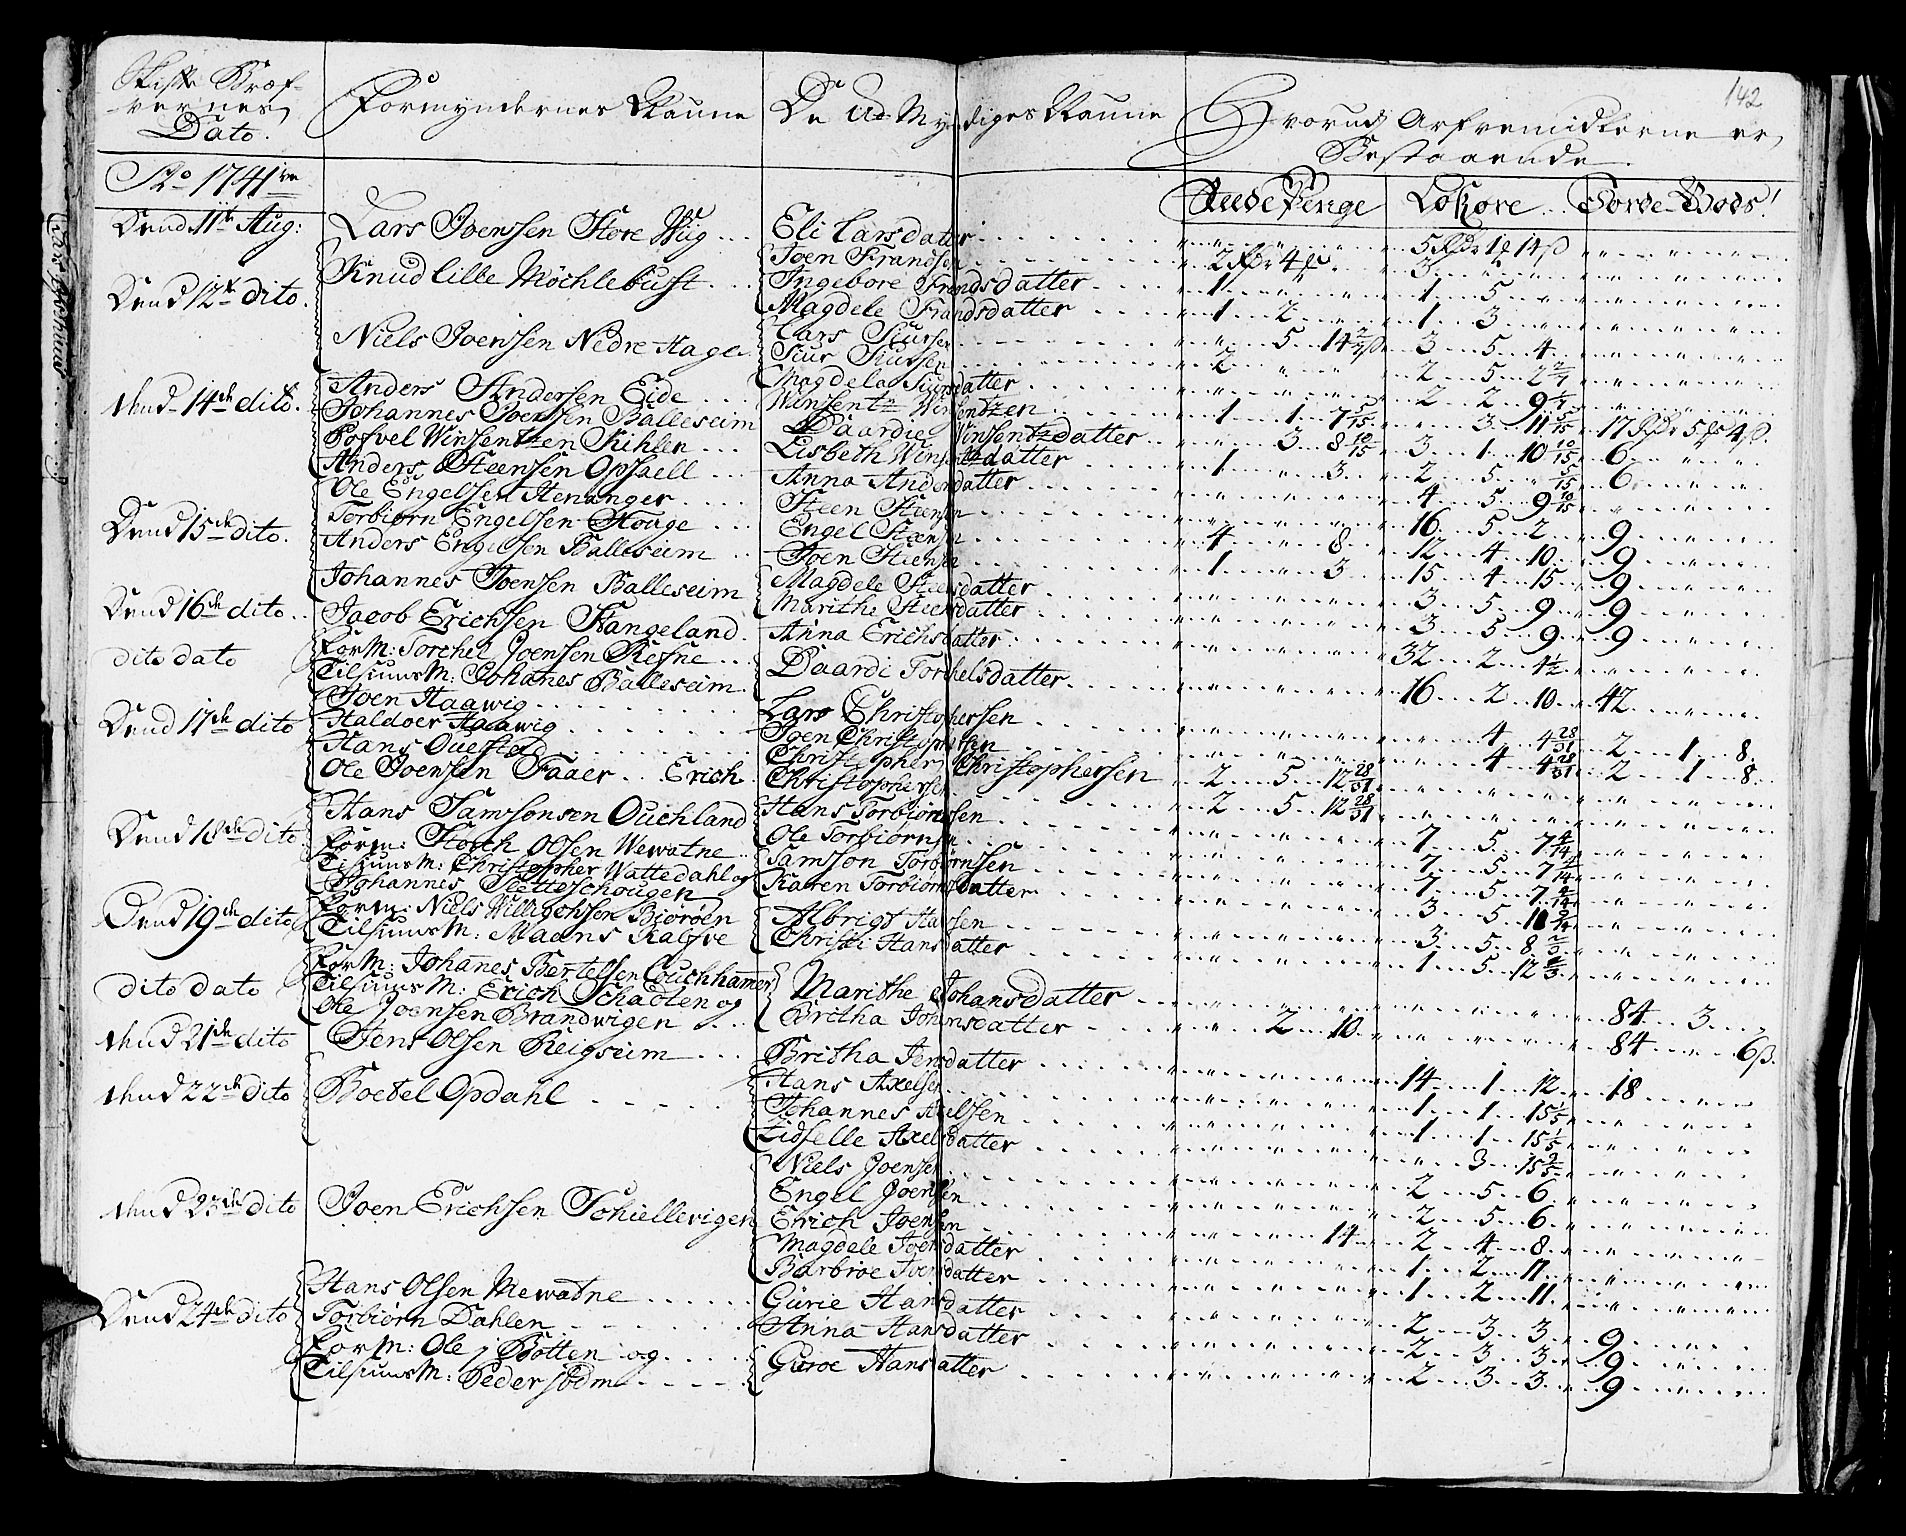 142
Skifte Bref-
vernes
Dato.
Formyndernes Naune
De U-Myndiges Naune
Hvorudj Arfvemidlerne er
Bestaaende
Ao 1741
Rede Penge Løsøre Jorde Gods!
Dend 11te Aug: Lars Joenssen Store Wiig Eli Larsdatter 5 Rdr 1 14 ß
Dend 12te dito. Knud Lille Møchlebust Joen Frandsen 2 Rdr 4 3
Ingebore Frandsdatter 1 1 5
Magdele Frandsdatter 1 2 1 3
Niels Joenssen Nedre Hage Lars Siursen 5 14 2/7 ß 3 5 4
Siur Siursen 2 2 5 2 2/7
Magdela Siursdatter 2 2 9 1/7
dend 14de dito. Anders Andersen Eide Winsentz Winsentzen 1 1 7 5/15 3 11 5/15 17 Rdr 5 4 ß
Johannes Joenssen Balleseim Daardie Winsentzdatter 3 8 10/15 3 1 10 10/15 6
Pofvel Winsentzen Kihlen Lisbeth Winsentzdatter 1 3 2 5 5/15 6
Anders Steensen Opsaell Anna Andersdatter 4 5 9 10/15
Dend 15de dito. Ole Engelsen Henanger Steen Steensen 16 5 2 9
Torbiørn Engelsen Houge Engel Steensen 4 8 12 4 10 9
Anders Engelsen Balleseim Joen Steensen 1 3 15 4 15 9
Johannes Joensen Balleseim Magdele Steensdatter 3 5 9 9
Marithe Steensdatter 3 5 9 9
Dend 16de dito Jacob Erichsen Stangeland Anna Erichsdatter 32 2 4 1/2
dito dato ForM: Torchel Joensen Refne Daardi Torchelsdatter 16 2 10 42
TilsiunsM: Johanes Balleseim
Dend 17de dito Joen Haawig Lars Christophersen 4 4 28/31 2 1 8
Haldoer Haawig Joen Christophersen 4 4 28/31 2 1 8
Hans Ouestad Christopher Christophersen 2 5 12 28/31
Ole Joensen Faaer Erich Christophersen 2 5 12 28/31
Dend 18de dito Hans Samssonsen Ouchland Hans Torbiørnsen 7 5 7 4/14
Form: Storch Olsen Wewatne Ole Torbiørnsen 7 5 7 4/14
TilsiunsM: Christopher Wattedahl og Samsson Torbiørnssen 7 5 7 4/14
Johannes Sletteschougen Karen Torbiørnsdatter 3 5 11 9/14
Dend 19de dito Form: Niels Willigohssen Biørøen Albrigt Hansen 3 5 8 2/3
TilsiunsM: Maans Kalfve Christi Hansdatter 1 5 12 1/3
dito dato ForM: Johanes Bertelsen Couchhamer Marithe Johansdatter 84 3
TilsiunsM: Erich Schaaten og Britha Johansdatter 2 10 84 6 ß
Ole Joensen Brandwigen
dend 21de dito Jens Olsen Reigseim Britha Jensdatter 14 1 12 18
dend 22de dito Boetel Opdahl Hans Axelsen 1 1 15 1/5
Johannes Axelssen 1 1 15 1/5
Lidselle Axelsdatter 3 15 3/5
dend 23de dito Joen Erichsen Schiellevigen Niels Joensen 2 5 6
Engel Joensen 2 5 6
Erich Joensen 14 2 4 8
Magdele Joensdatter 1 2 11
Barbroe Joensdatter 1 2 11
Dend 24de dito Hans Olsen Mewatne Gurie Hansdatter 2 3 3 9
Torbiørn Dahlen Anna Hansdatter 2 3 3 9
ForM: Ole Botten og Guroe Hansdatter 2 3 3 9
TilsiunsM: Peder Sødm